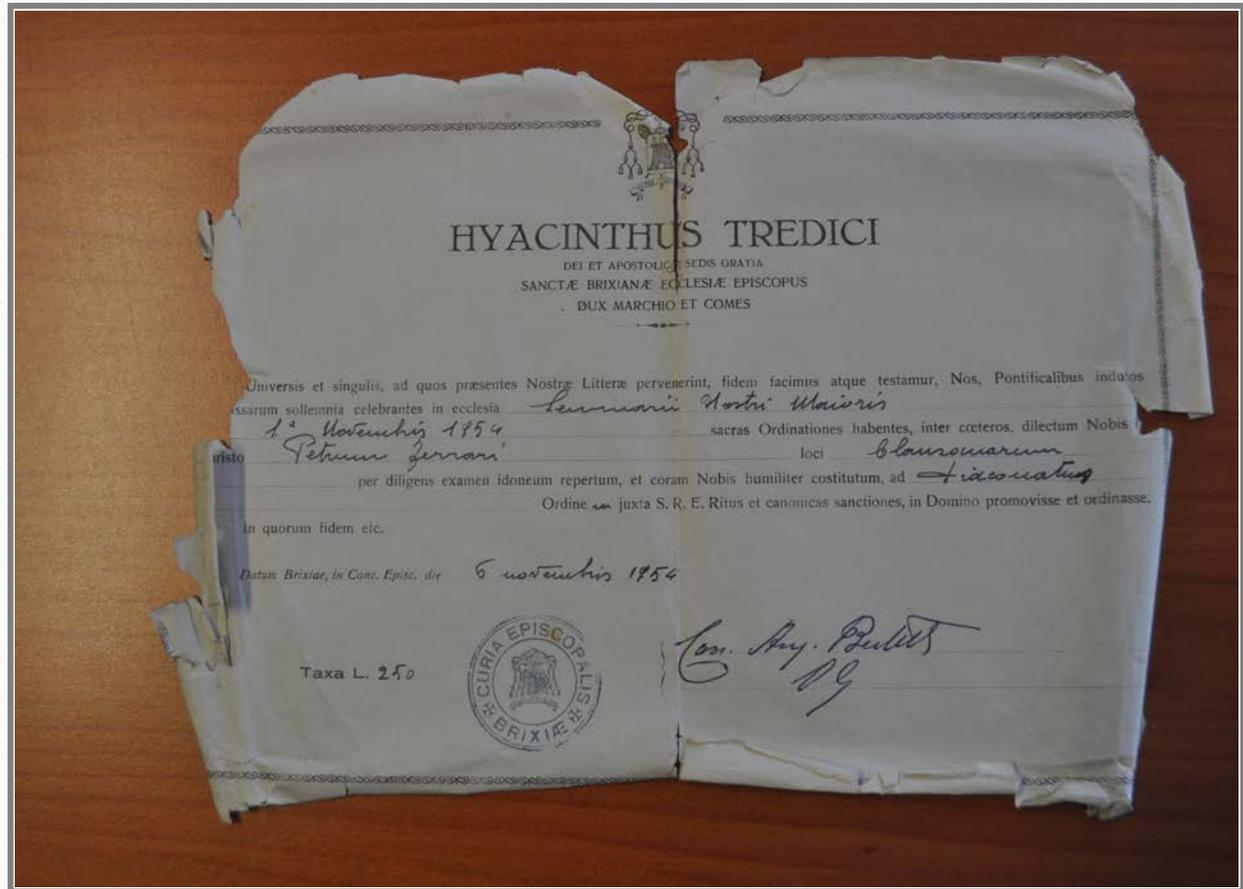 HYACINTHUS TREDICI
DEI ET APOSTOLICÆ SEDIS GRATIA
SANCTÆ BRIXIANÆ ECCLESIÆ EPISCOPUS
DUX MARCHIO ET COMES
Universis et singulis, ad quos præsentes Nostræ Litteræ pervenerint, fidem facimus atque testamur, Nos, Pontificalibus indutos
issarum sollemnia celebrantes in ecclesia Seminarii Nostri Maioris
1ª Novembris 1954 sacras Ordinationes habentes, inter cœteros. dilectum Nobis
risto Petrum Ferrari loci
per diligens examen idoneum repertum, et coram Nobis humiliter costitutum, ad diaconatus
Ordinem juxta S. R. E. Ritus et canonicas sanctiones, in Domino promovisse et ordinasse.
in quorum fidem etc.
Datum Brixiae, in Canc. Episc. die 6 novembris 1954
Taxa L. 250
CURIA EPISCOPALIS
BRIXIÆ
Can. Ang.